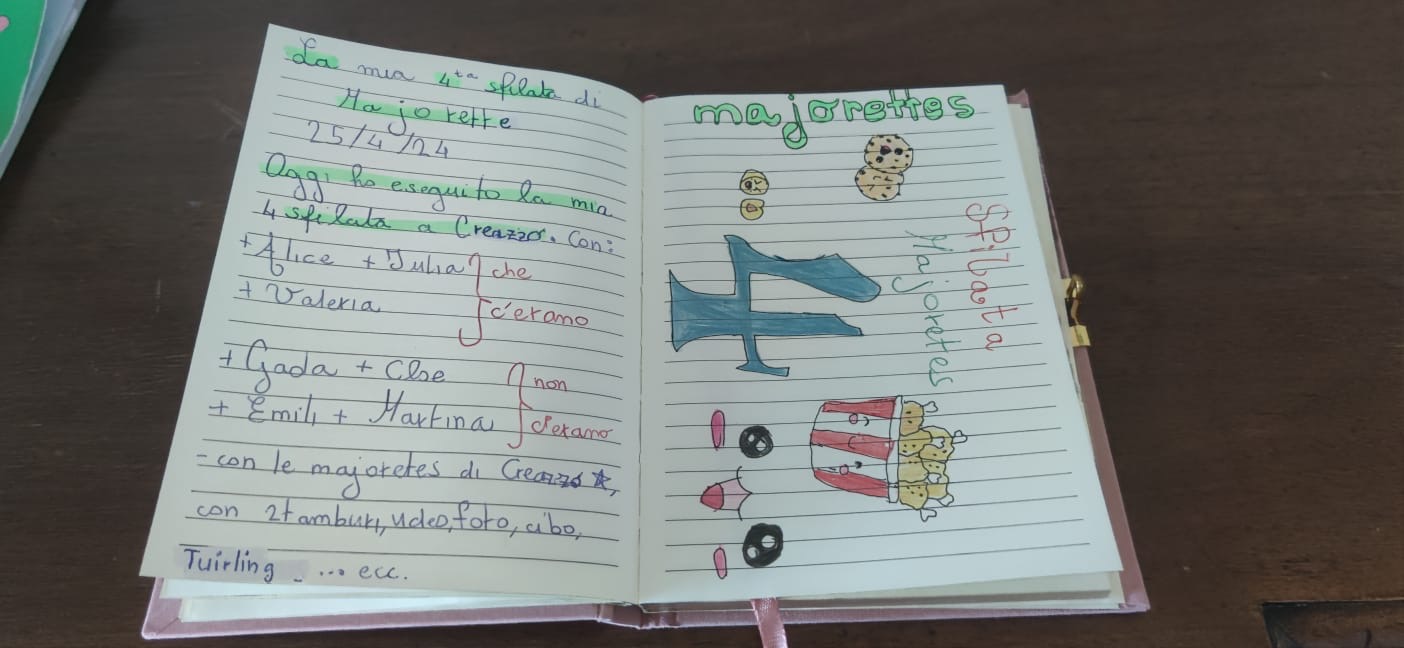 La mia 4ta sfilata di
Majorette
25/4/24
Oggi ho eseguito la mia
4 sfilata a Creazzo. Con:
+ Alice + Julia } che
+ Valeria } c'erano
+ Gada + Cloe } non
+ Emili + Martina } c'erano
- con le majoretes di Creazzo,
con 2 tamburi, video, foto, cibo,
Tuirling. ... ecc.
majorettes
4
Sfilata
Majoretes